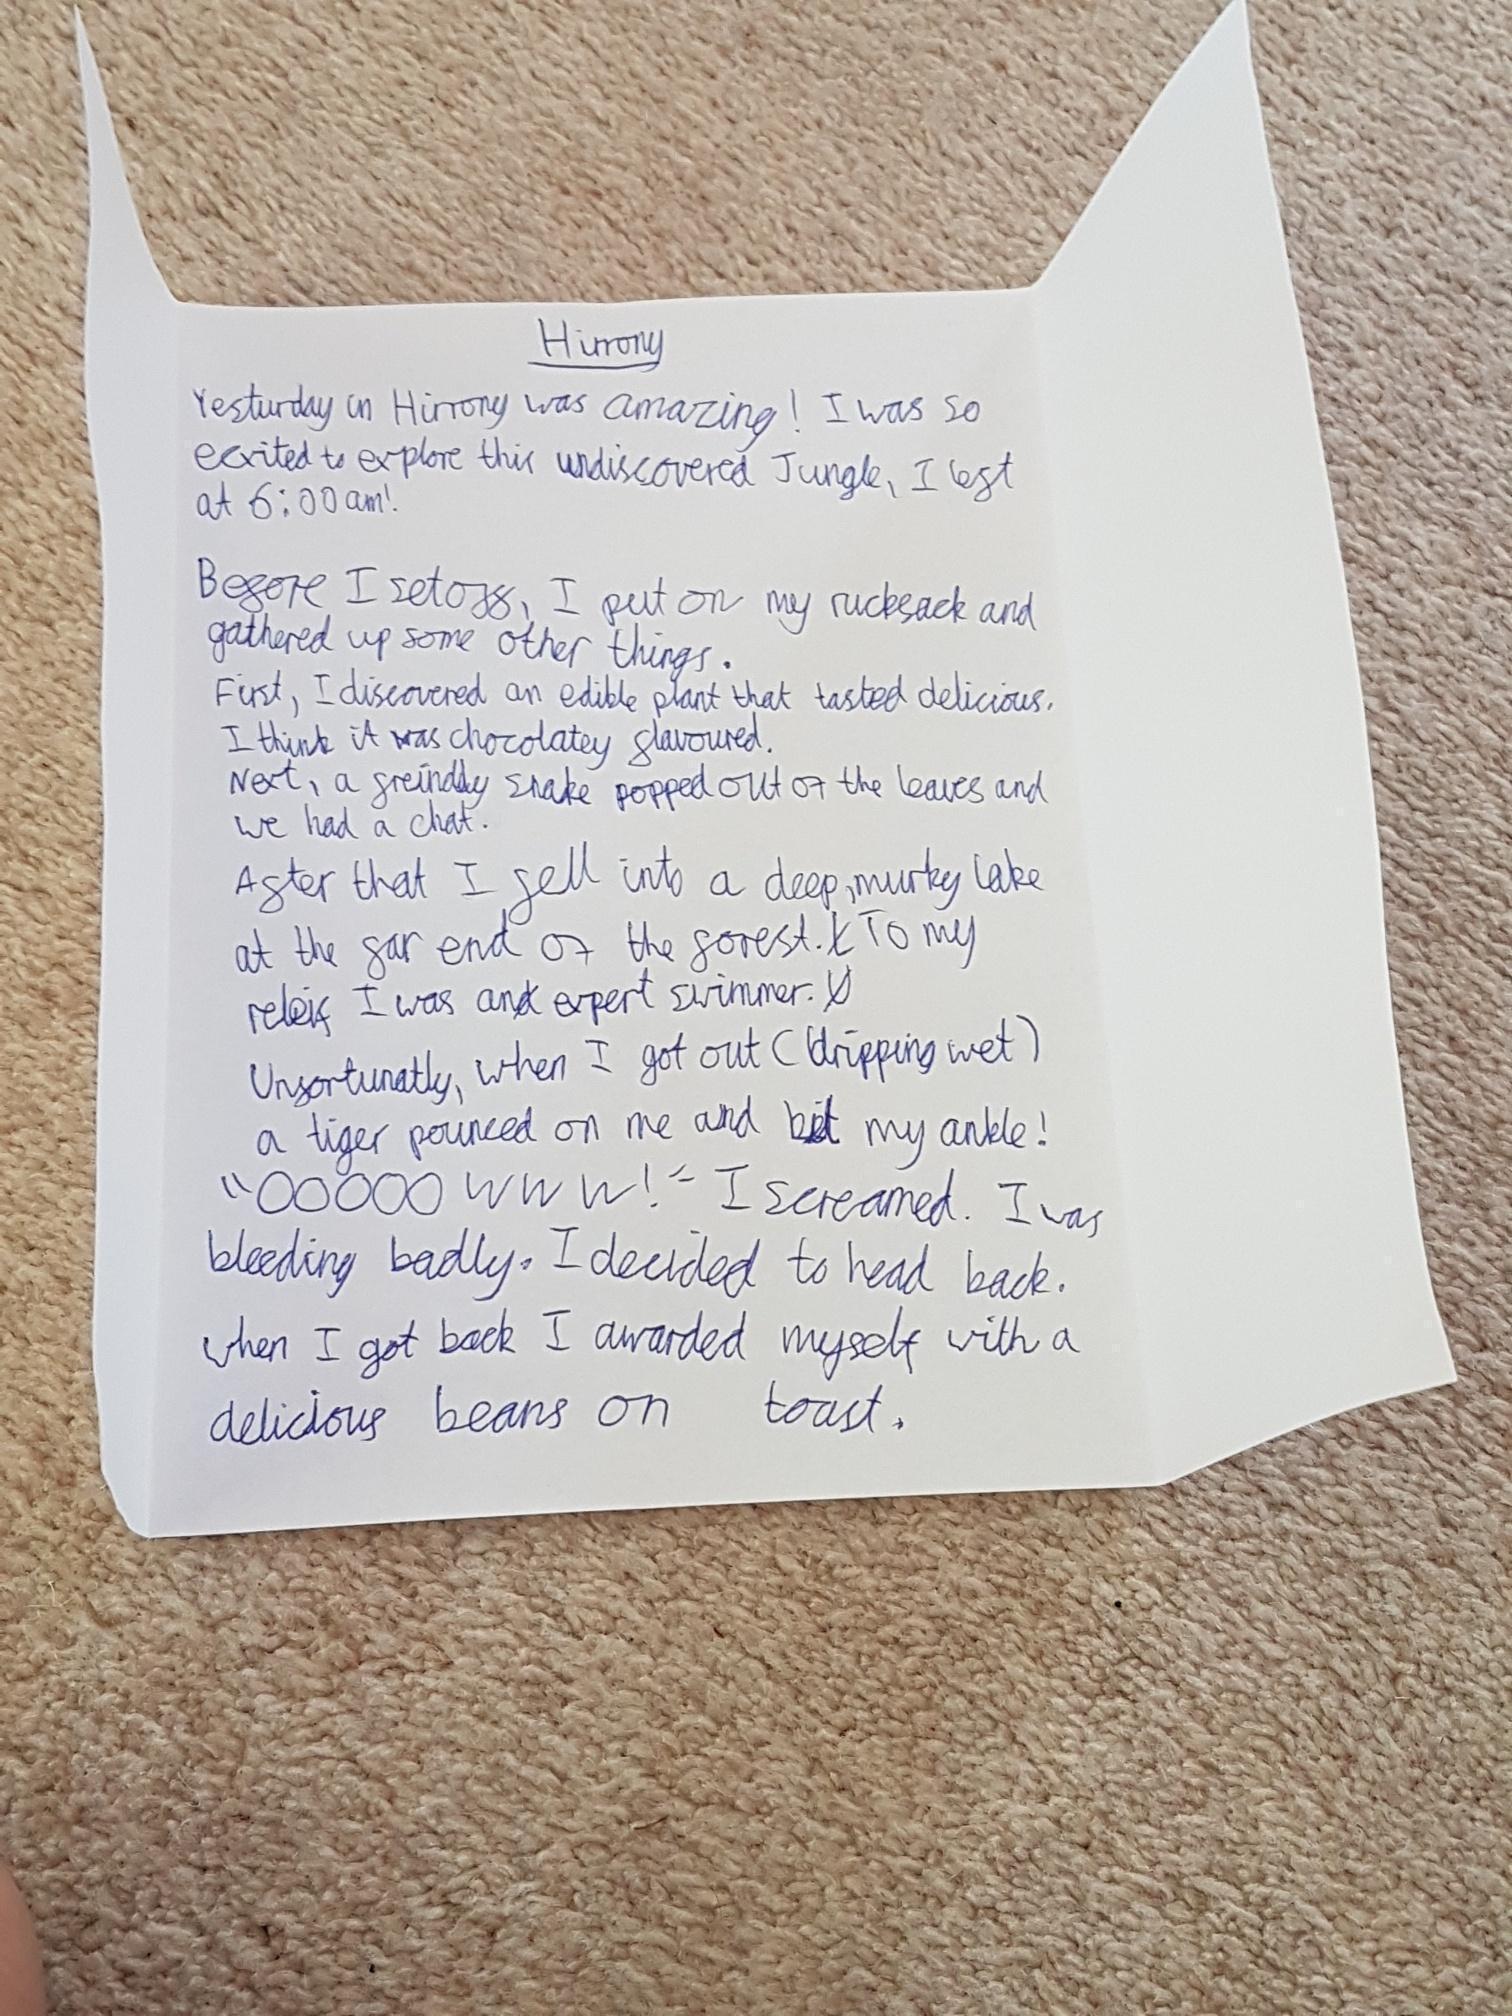 Hirrony
Yesturday in Hirrony was amazing! I was so
excited to explore this undiscovered Jungle, I left
at 6:00am!
Before I set off, I put on my rucksack and
gathered up some other things.
First, I discovered an edible plant that tasted delicious.
I think it was chocolatey flavoured.
Next, a freindly snake popped out of the leaves and
we had a chat.
After that I fell into a deep, murky lake
at the far end of the forest. To my
releif I was an expert swimmer.
Unfortunatly, when I got out (dripping wet)
a tiger pounced on me and bit my ankle!
"OOOOOWWW!" I screamed. I was
bleeding badly. I decided to head back.
when I got back I awarded myself with a
delicious beans on toast.